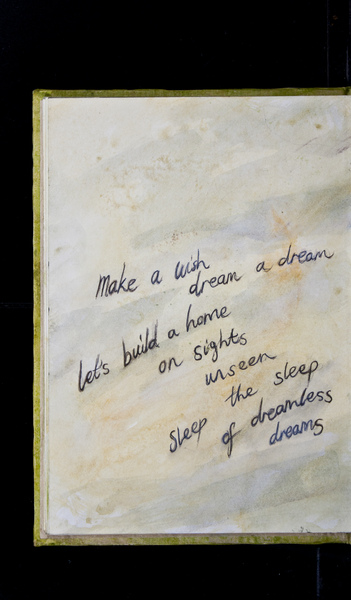 Make a wish
dream a dream
let's build a home
on sights
unseen
sleep the sleep
of dreamless
dreams